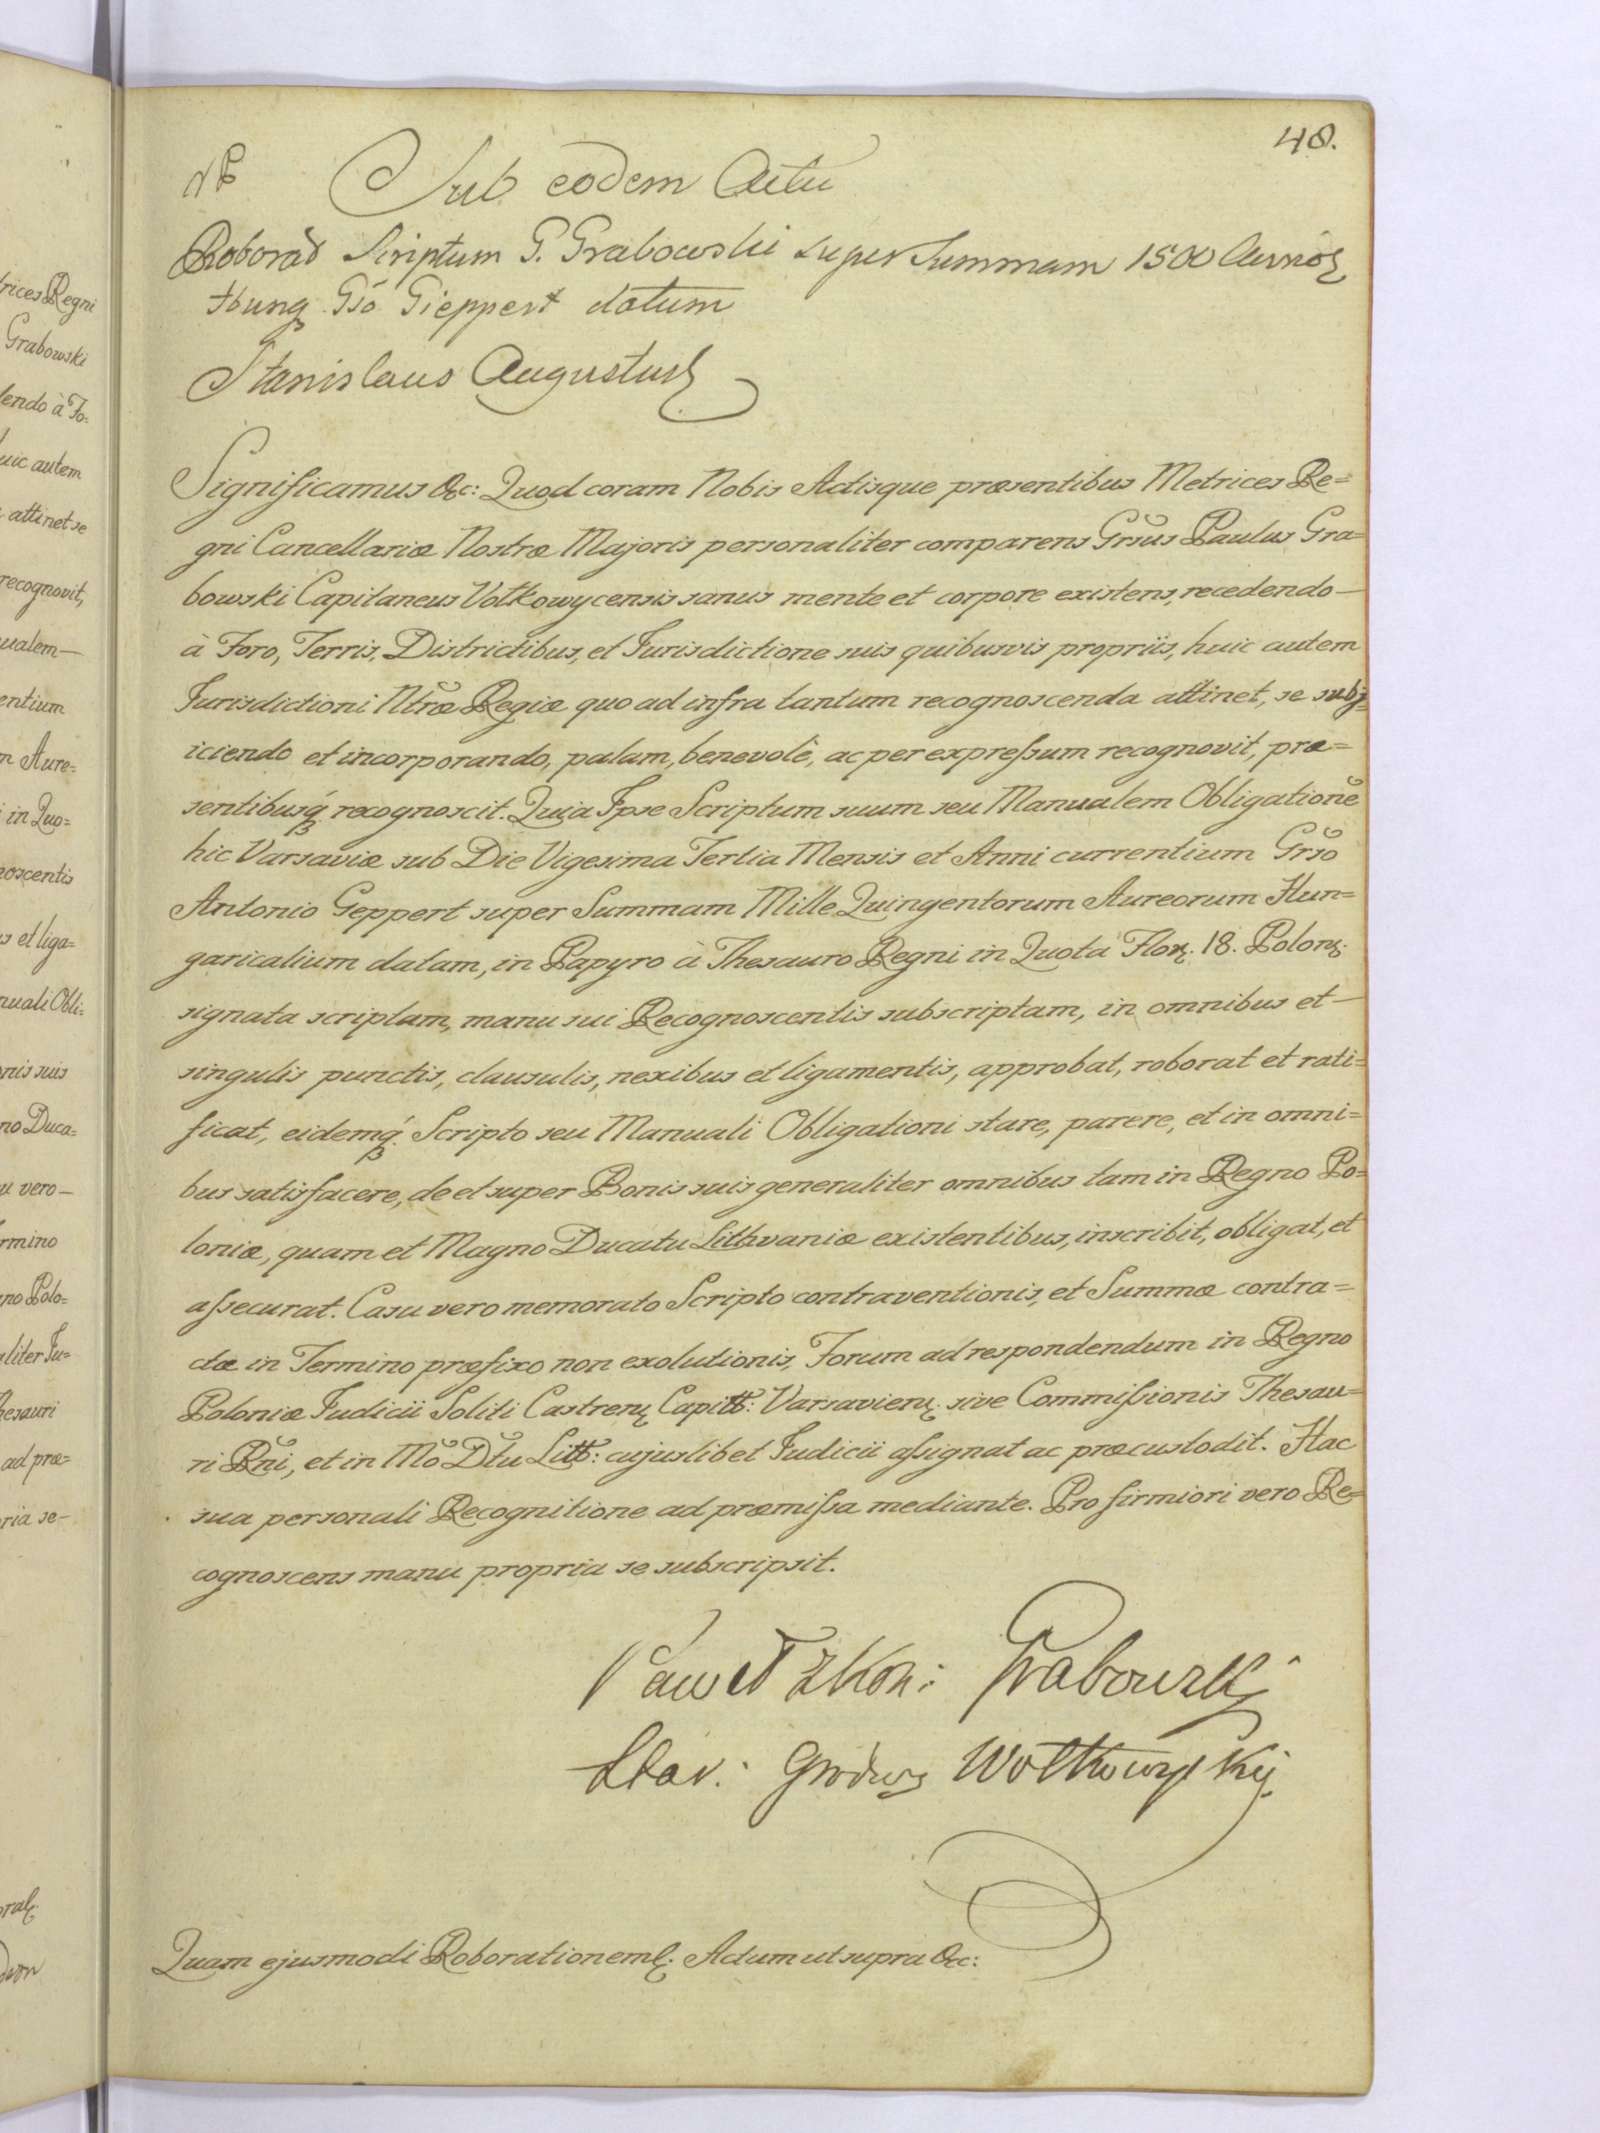 48.
Sub eodem Actu
Roborað Scriptum G. Grabowski super Summam 1500 Aurröꝝ
Hung Gsö Gieppert datum
Stanislaus Augustus
Significamus &c: Quod coram Nobis Actisque præsentibus Metrices Re=
gni Cancellariæ Nostræ Majoris personaliter comparens Grsus Paulus Gra=
bowski Capitaneus Volkowycensis sanus mente et corpore existens, recedendo—
à Foro, Terris, Districtibus, et Jurisdictione suis quibusvis propriis, huic autem
Jurisdictioni Ntræ Regiæ quo ad infra tantum recognoscenda attinet, se subj=
iciendo et incorporando, palam, benevolè, ac per expressum recognovit, præ=
sentibusq́ recognoscit. Quia Ipse Scriptum suum seu Manualem Obligationẽ
hic Varsaviæ sub Die Vigesima Tertia Mensis et Anni currentium Grso
Antonio Geppert super Summam Mille Quingentorum Aureorum Hun=
garicalium datam, in Papyro à Thesauro Regni in Quota Flor. 18. Polon.
signata scriptam, manu sui Recognoscentis subscriptam, in omnibus et—
singulis punctis, clausulis, nexibus et ligamentis, approbat, roborat et rati=
ficat, eidemq́. Scripto seu Manuali Obligationi stare, parere, et in omni=
bus satisfacere, de et super Bonis suis generaliter omnibus tam in Regno Po=
loniæ, quam et Magno Ducatu Lithvaniæ existentibus, inscribit, obligat, et
assecurat. Casu vero memorato Scripto contraventionis, et Summæ contra=
ctæ in Termino præfixo non exolutionis, Forum ad respondendum in Regno
Poloniæ Judicii Soliti Castren. Capitt: Varsavien. sive Commissionis Thesau=
ri Rni, et in Mo Dtu Litt: cujuslibet Judicii assignat ac præcustodit. Hac
sua personali Recognitione ad præmissa mediante. Pro firmiori vero Re=
cognoscens manu propria se subscripsit.
Paweł z Kon: Grabowski
Star: Grodwy Wołkowyski
Quam ejusmodi Roborationem. Actum ut supra &c: